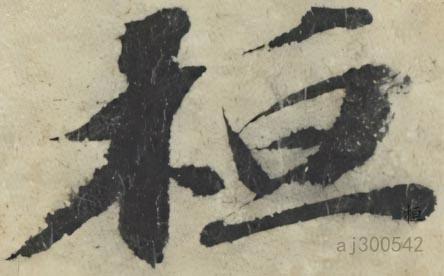 桓
恒
aj300542